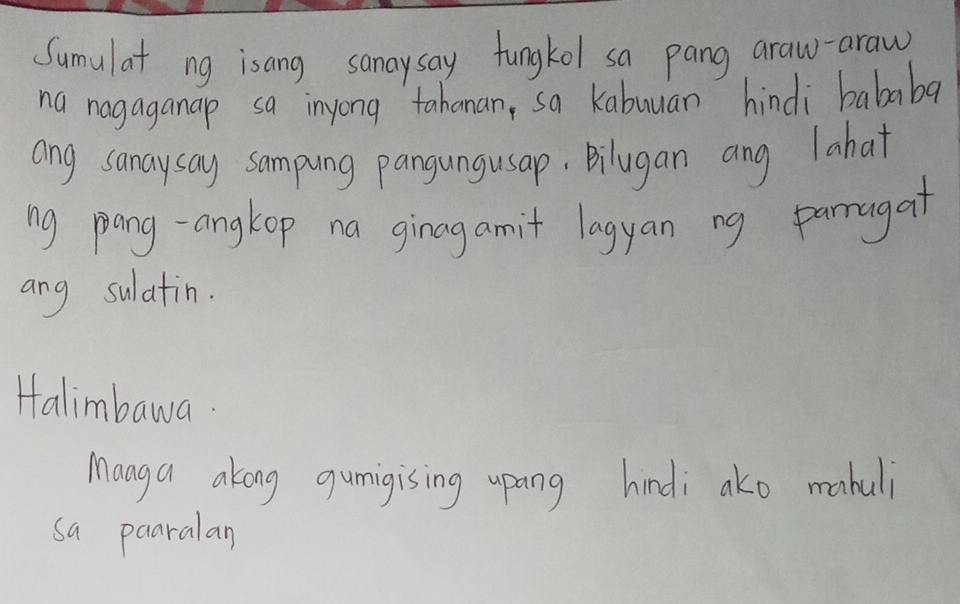 Sumulat ng isang sanaysay tungkol sa pang araw-araw
na nagaganap sa inyong tahanan, sa kabuuan hindi bababa
ang sanaysay sampung pangungusap. Bilugan ang lahat
ng pang-angkop na ginagamit lagyan ng pamagat
ang sulatin.
Halimbawa.
Maaga akong gumigising upang hindi ako mahuli
sa paaralan